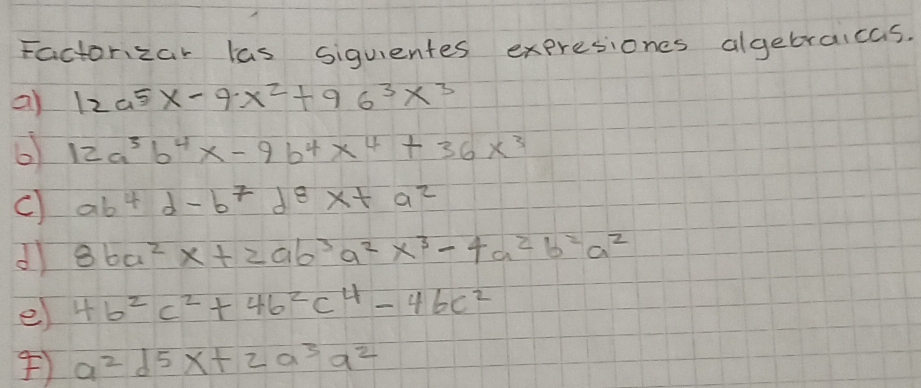 Factorizar las siguientes expresiones algebraicas.
a) 12a⁵x - 9x² + 9b³x³
b) 12a³b⁴x - 9b⁴x⁴ + 36x³
c) ab⁴d - b⁷d⁸x + a²
d) 8ba²x + 2ab³a²x³ - 4a²b²a²
e) 4b²c² + 4b²c⁴ - 4bc²
f) a²d⁵x + 2a³a²